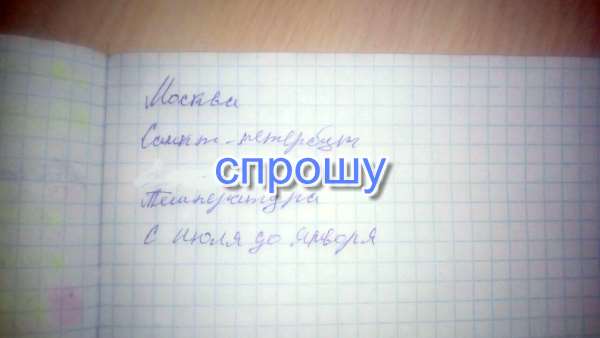 Москва
Санкт-петербург
спрошу
Температура
С июля до января